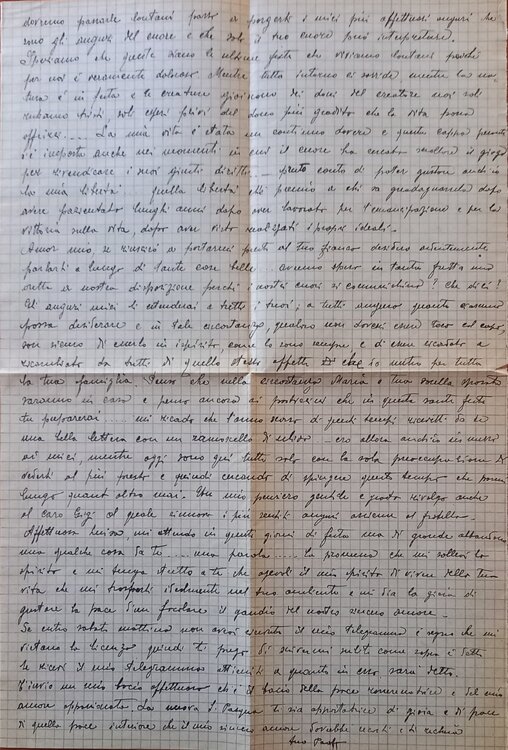 dovremo passarle lontani passo a porgerti i miei più affettuosi auguri che
sono gli auguri del cuore e che solo il tuo cuore può interpretare.
Speriamo che queste siano le ultime feste che viviamo lontani perché
per noi è veramente doloroso. Mentre tutto intorno ci sorride mentre la na-
tura è in festa e le creature gioiscono dei doni del creatore noi soli
restiamo tristi, soli esseri privi del dono più gradito che la vita possa
offrirci..... La mia vita è stata un continuo dovere e questa cappa pesante
s'è imposta anche nei momenti in cui il cuore ha cercato il giogo
per rivendicare i suoi giusti diritti.... presto conto di poter gustare anch'io
la mia libertà quella libertà che è premio a chi va guadagnarsela dopo
avere pazientato lunghi anni dopo aver lavorato per l'emancipazione e per la
vittoria sulla vita, dopo aver visto realizzati i propri ideali.
Amor mio, se riuscirò a portarmi presto al tuo fianco desidero ardentemente
parlarti a lungo di tante cose belle... avremo spero in tanta fretta una
oretta a nostra disposizione perché i nostri cuori si comunichino? Che dici?
Gli auguri miei li estenderai a tutti i tuoi; a tutti auguro quanto ognuno
possa desiderare e in tale circostanza, qualora non dovessi essere loco al corpo,
son sicuro di esserlo in ispirito come lo sono sempre e di esser ricordato e
ricambiato da tutti di quello stesso affetto che io nutro per tutta
la tua famiglia. Penso che nella circostanza Maria e tua sorella sposata
saranno in casa e penso ancora ai che in queste sante feste
tu preparerai..... mi ricordo che l'anno scorso di questi tempi ricevetti da te
una bella lettera con un ramoscello d'ulivo... ero allora anch'io in mezzo
ai miei, mentre oggi sono qui tutto solo con la sola preoccupazione di
vederti al più presto e quindi cercando di spingere questo tempo che pare
lungo quant'altro mai. Un mio pensiero gentile e grato rivolgo anche
al caro Gigi al quale rinnovo i più sentiti auguri assieme al fratello.
Affettuosa Luisa, mi attendo in questi giorni di festa ma di grande abbandono
una qualche cosa da te..... una parola..... la promessa che mi sollevi lo
spirito e mi tenga stretto a te che agevoli il mio spirito di vivere della tua
vita che mi trasporti idealmente nel tuo ambiente e mi dia la gioia di
gustare la pace d'un focolare il gaudio del nostro sincero amore.
Se entro sabato mattina non avrai ricevuto il mio telegramma è segno che mi
vietano la licenza quindi ti prego di scrivermi subito come sopra ti dotti
se ricevi il mio telegramma attieniti a quanto in esso sarà detto.
T'invio un mio bacio affettuoso che è il bacio della pace rinnovatrice e del mio
amore appassionato. La nuova S. Pasqua ti sia apportatrice di gioia e di pace
di quella pace interiore che il mio sincero amore dovrebbe
tuo